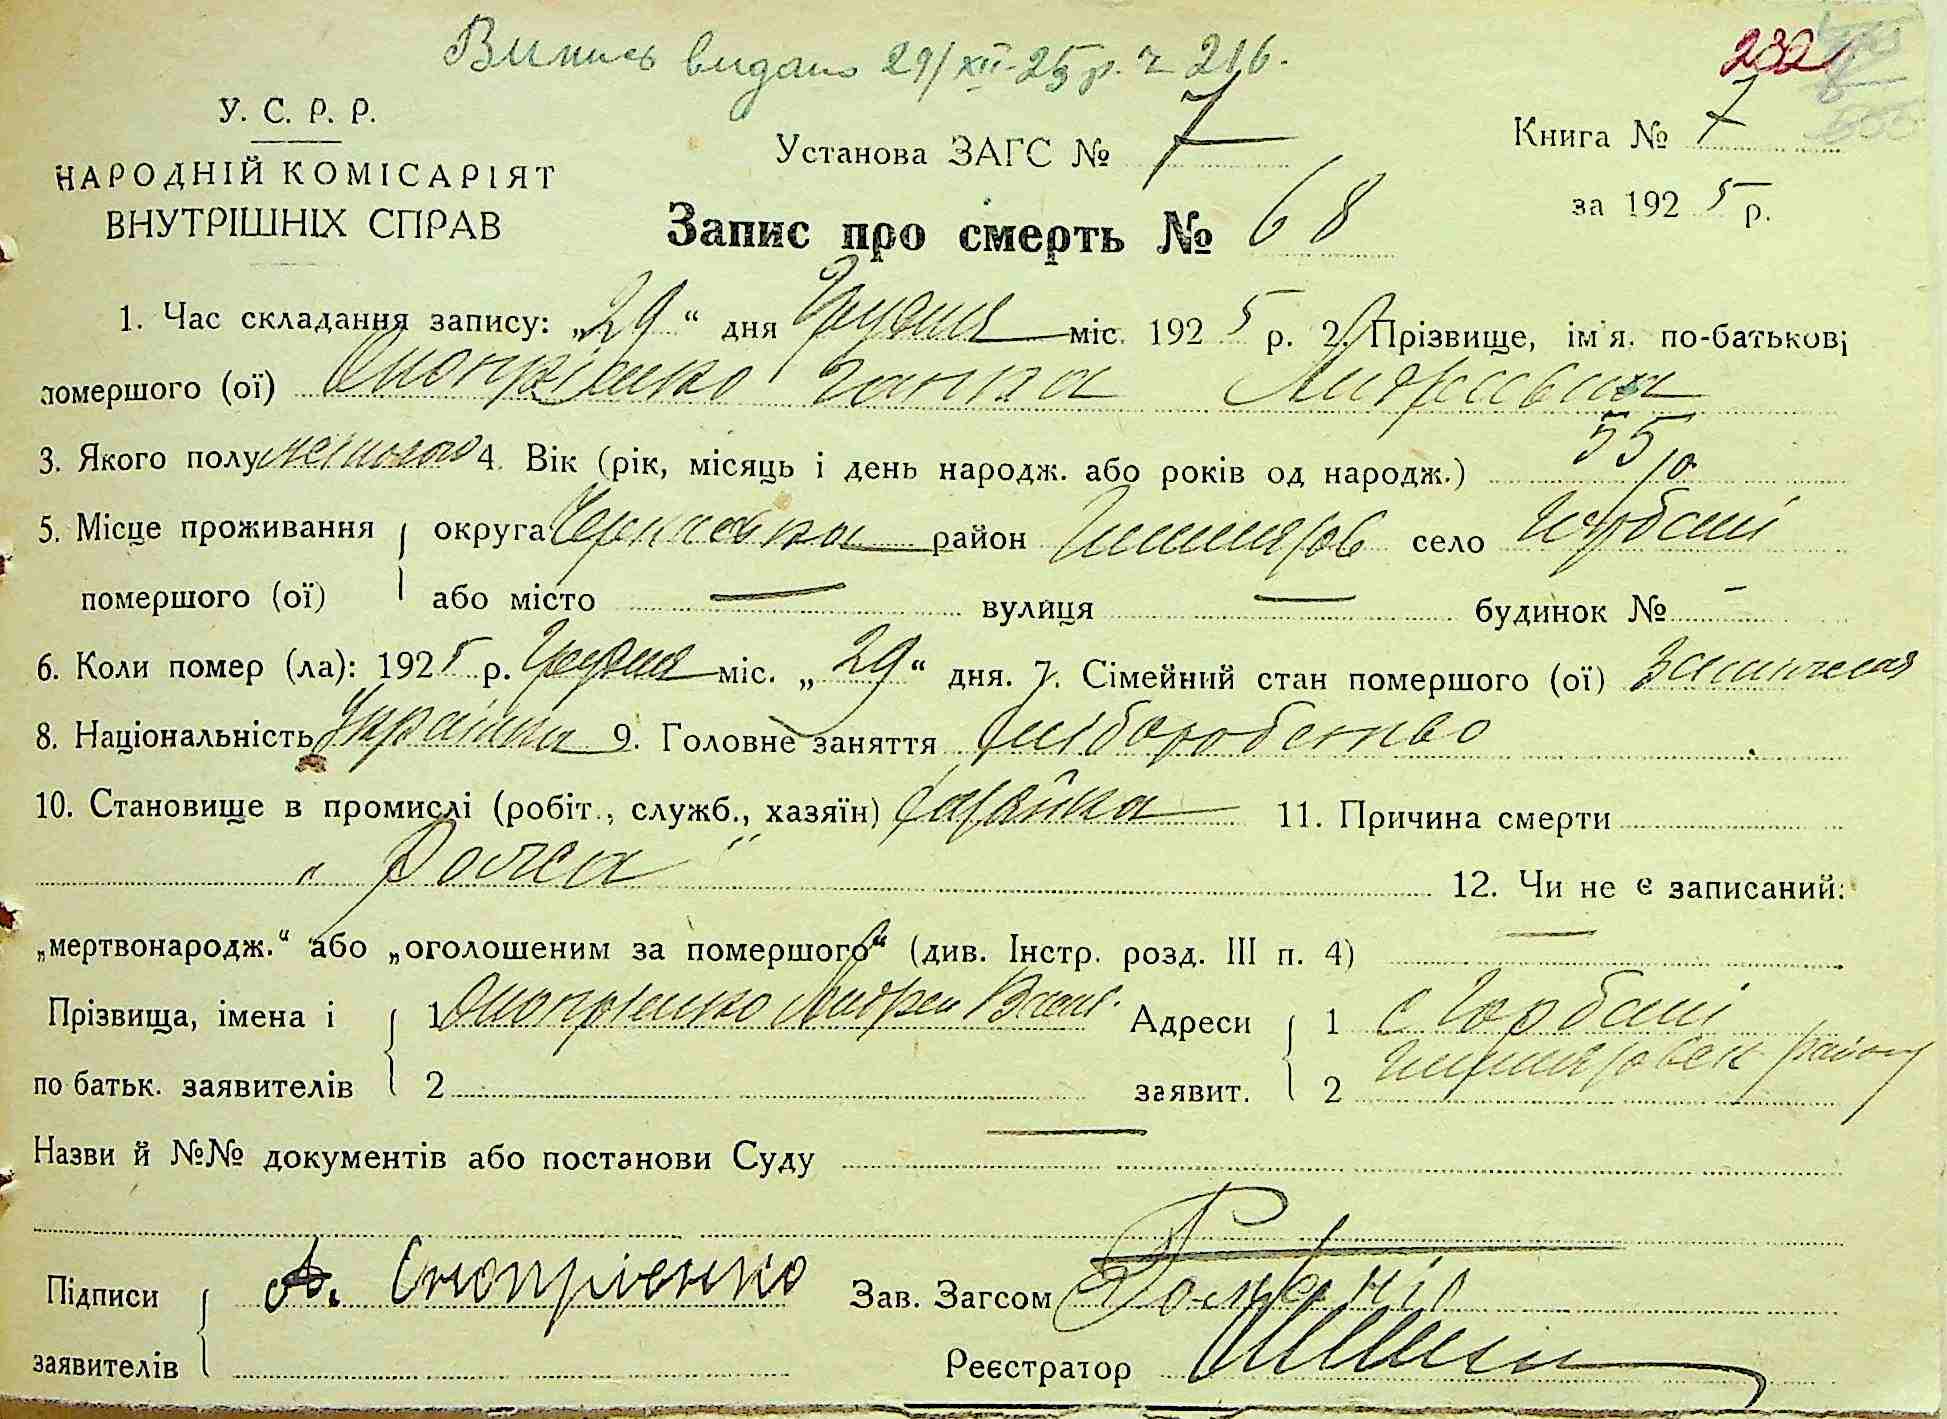 Випись видано 29/XII-25 р. ч 216.
232
У. С. Р. Р.
НАРОДНІЙ КОМІСАРІЯТ
ВНУТРІШНІХ СПРАВ
Установа ЗАГС № 7
Книга № 7
за 1925 р.
Запис про смерть № 68
1. Час складання запису: „29“ дня Грудня міс. 1925 р. 2. Прізвище, ім'я, по-батькові
помершого (ої) Онопрієнко Ганна Андреєвна
3. Якого полу жіночого 4. Вік (рік, місяць і день народж. або років од народж.) 55 р
5. Місце проживання округа район село Горбані
помершого (ої) або місто — вулиця — будинок № —
6. Коли помер (ла): 1925 р. Грудня міс. „29“ дня. 7. Сімейний стан помершого (ої)
8. Національність Українка 9. Головне заняття хліборобство
10. Становище в промислі (робіт., служб., хазяїн) хазяйка 11. Причина смерти
„Рожа“ 12. Чи не є записаний:
„мертвонародж.“ або „оголошеним за помершого“ (див. Інстр. розд. III п. 4) —
Прізвища, імена і 1 Онопрієнко Андрей Адреси 1 с Горбані
по батьк. заявителів 2 заявит. 2 району
Назви й №№ документів або постанови Суду —
Підписи А. Онопрієнко Зав. Загсом
заявителів Реєстратор